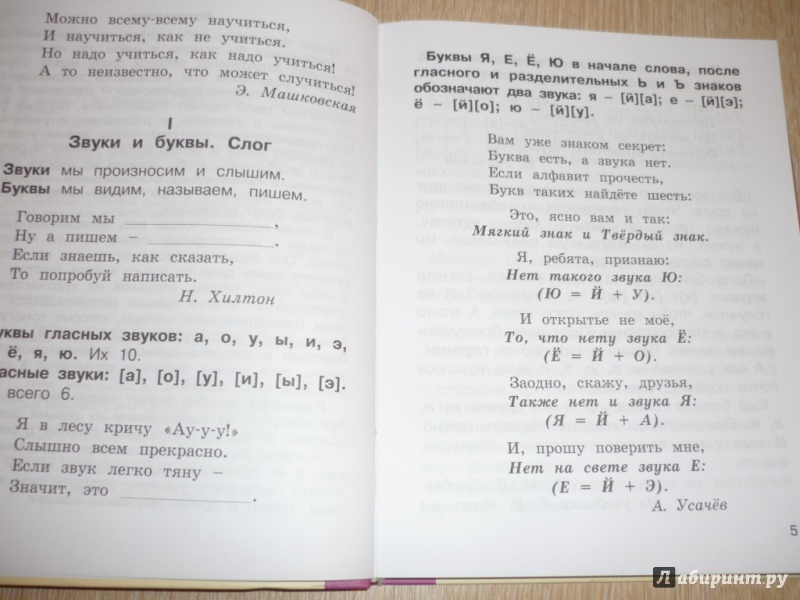 Можно всему-всему научиться,
И научиться, как не учиться.
Но надо учиться, как надо учиться!
А то неизвестно, что может случиться!
Э. Машковская
I
Звуки и буквы. Слог
Звуки мы произносим и слышим.
Буквы мы видим, называем, пишем.
Говорим мы ____________,
Ну а пишем – ____________.
Если знаешь, как сказать,
То попробуй написать.
Н. Хилтон
уквы гласных звуков: а, о, у, ы, и, э,
ё, я, ю. Их 10.
асные звуки: [а], [о], [у], [и], [ы], [э].
всего 6.
Я в лесу кричу «Ау-у-у!»
Слышно всем прекрасно.
Если звук легко тяну –
Значит, это ____________.
Буквы Я, Е, Ё, Ю в начале слова, после
гласного и разделительных Ь и Ъ знаков
обозначают два звука: я – [й][а]; е – [й][э];
ё – [й][о]; ю – [й][у].
Вам уже знаком секрет:
Буква есть, а звука нет.
Если алфавит прочесть,
Букв таких найдёте шесть:
Это, ясно вам и так:
Мягкий знак и Твёрдый знак.
Я, ребята, признаю:
Нет такого звука Ю:
(Ю = Й + У).
И открытье не моё,
То, что нету звука Ё:
(Ё = Й + О).
Заодно, скажу, друзья,
Также нет и звука Я:
(Я = Й + А).
И, прошу поверить мне,
Нет на свете звука Е:
(Е = Й + Э).
А. Усачёв
5
Лабиринт.ру